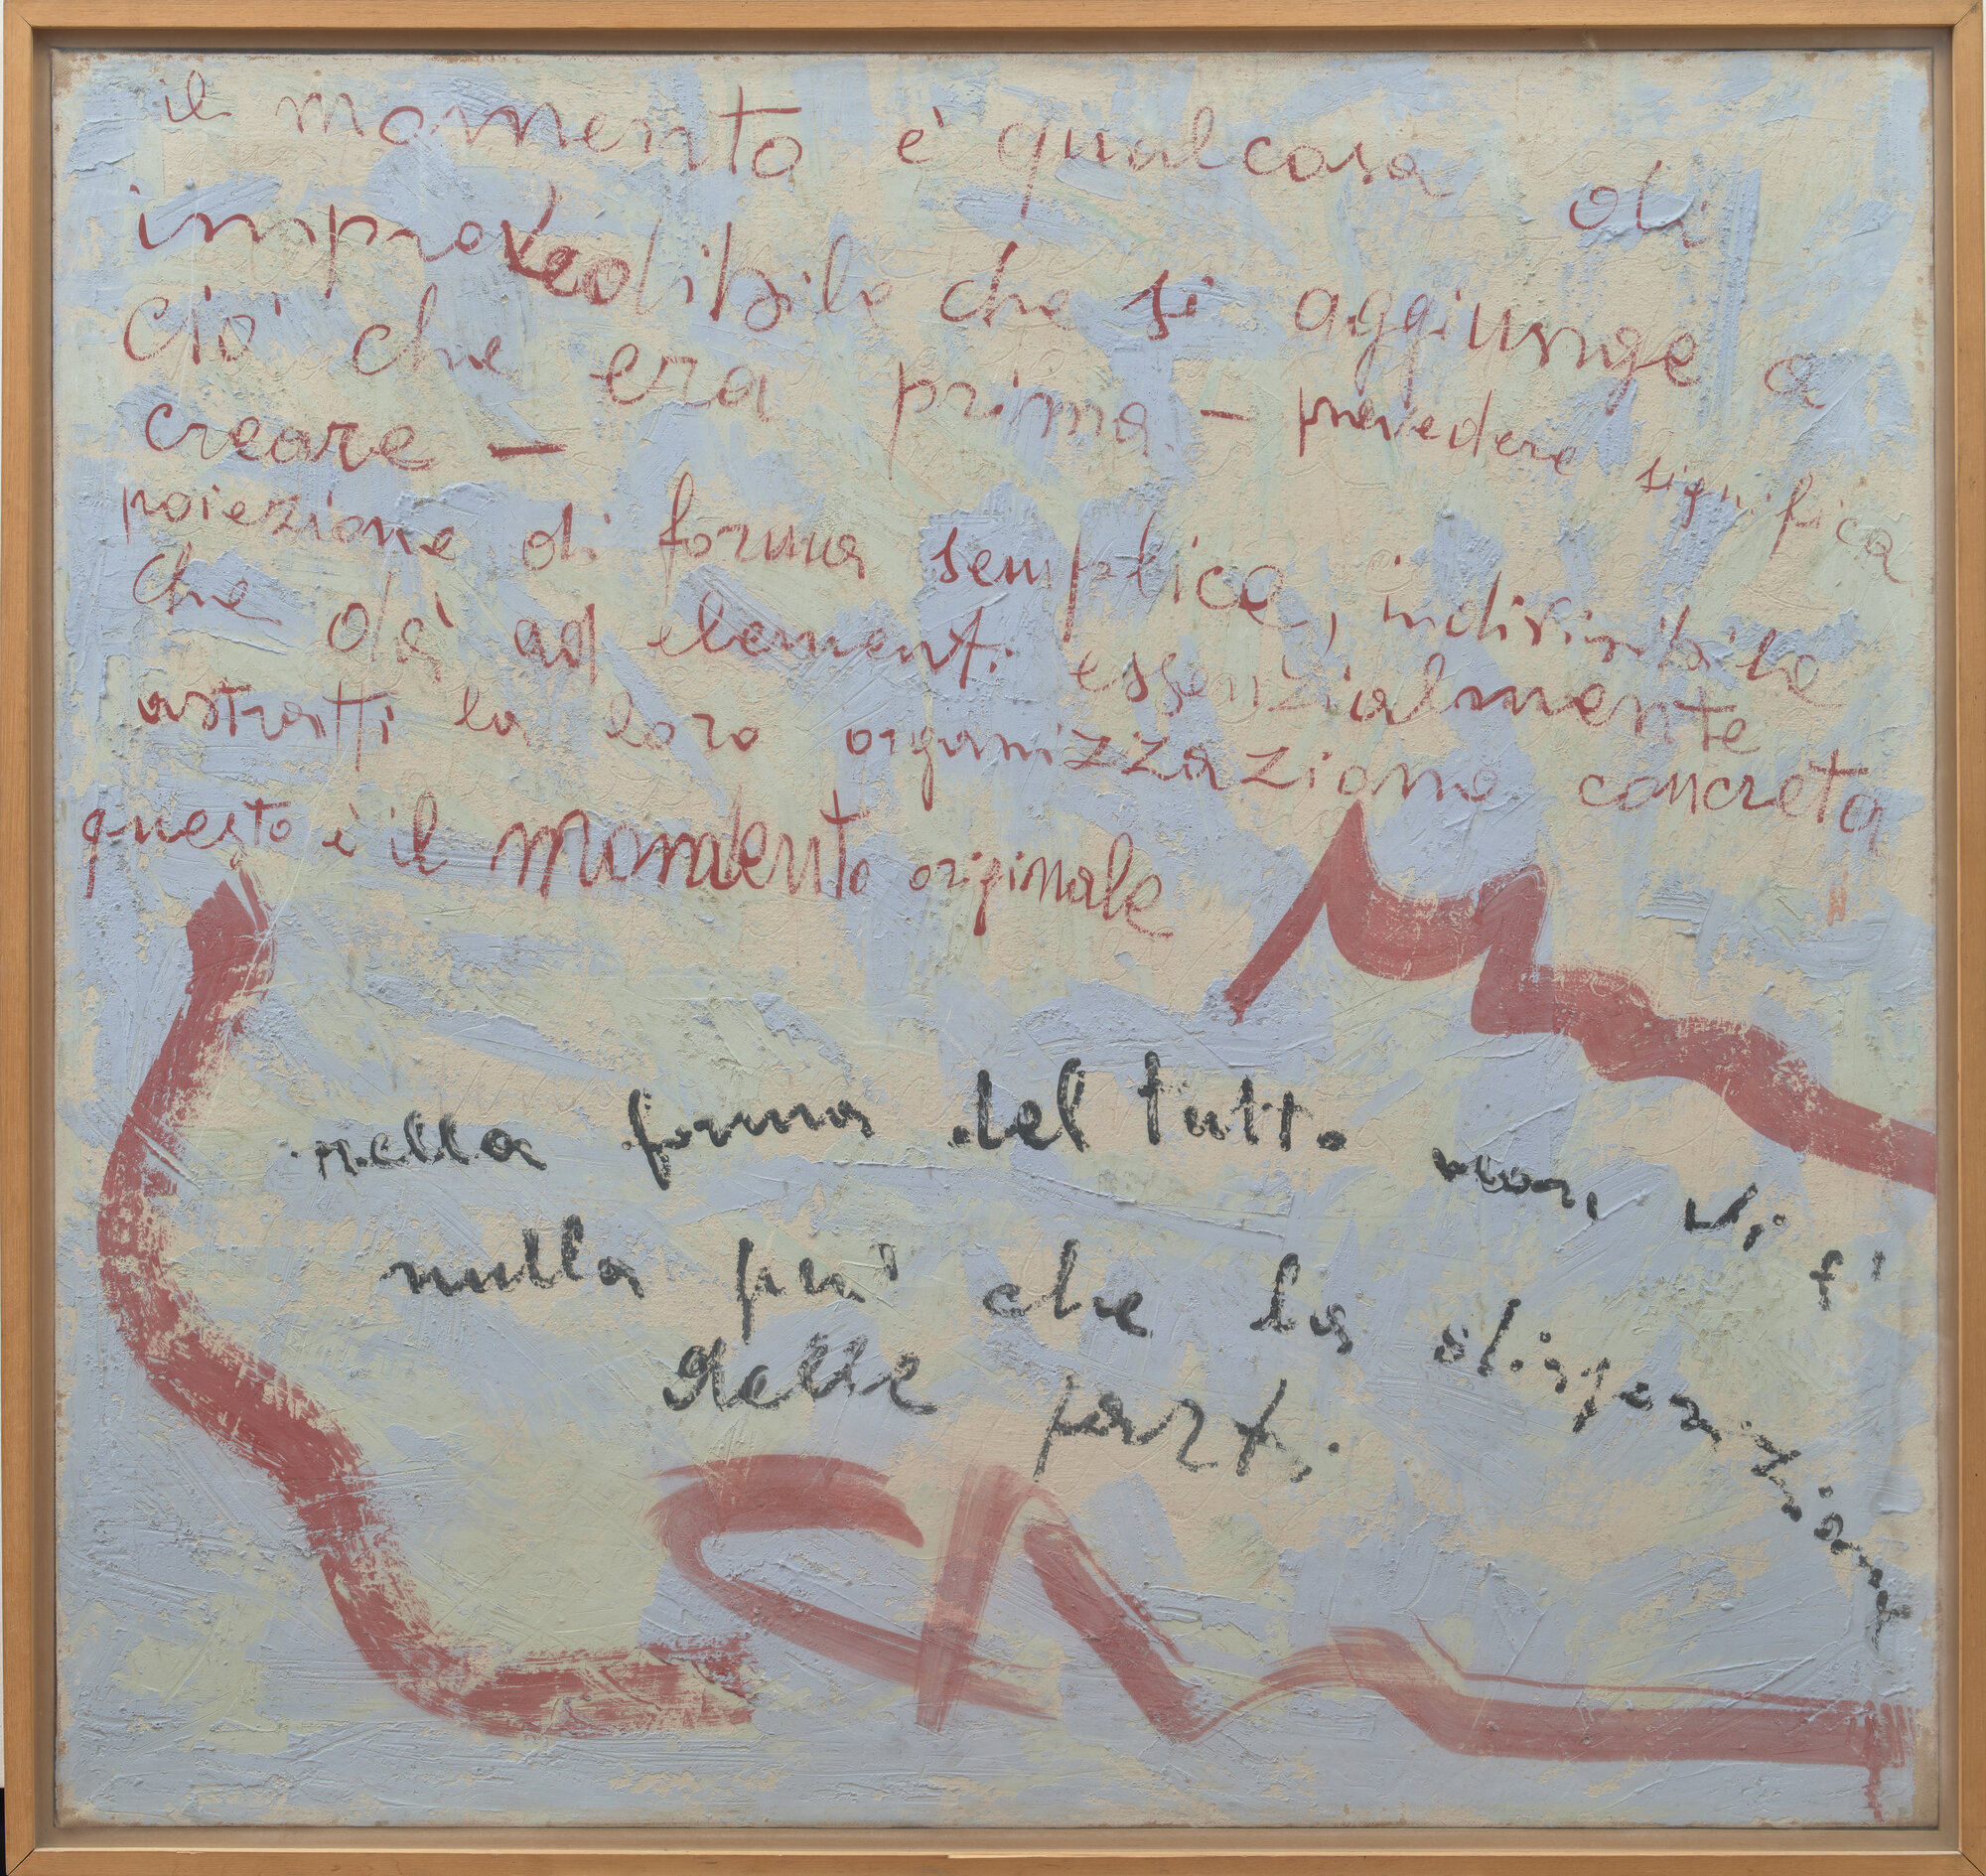 il momento è qualcosa di
improvedibile che si aggiunge a
ciò che era prima - prevedere significa
creare -
poiezione di forma semplice, indivisibile
che dà ad elementi essenzialmente
astratti la loro organizzazione concreta
questo è il momento originale
nella forma del tutto non vi è
nulla più che la disposizione
delle parti